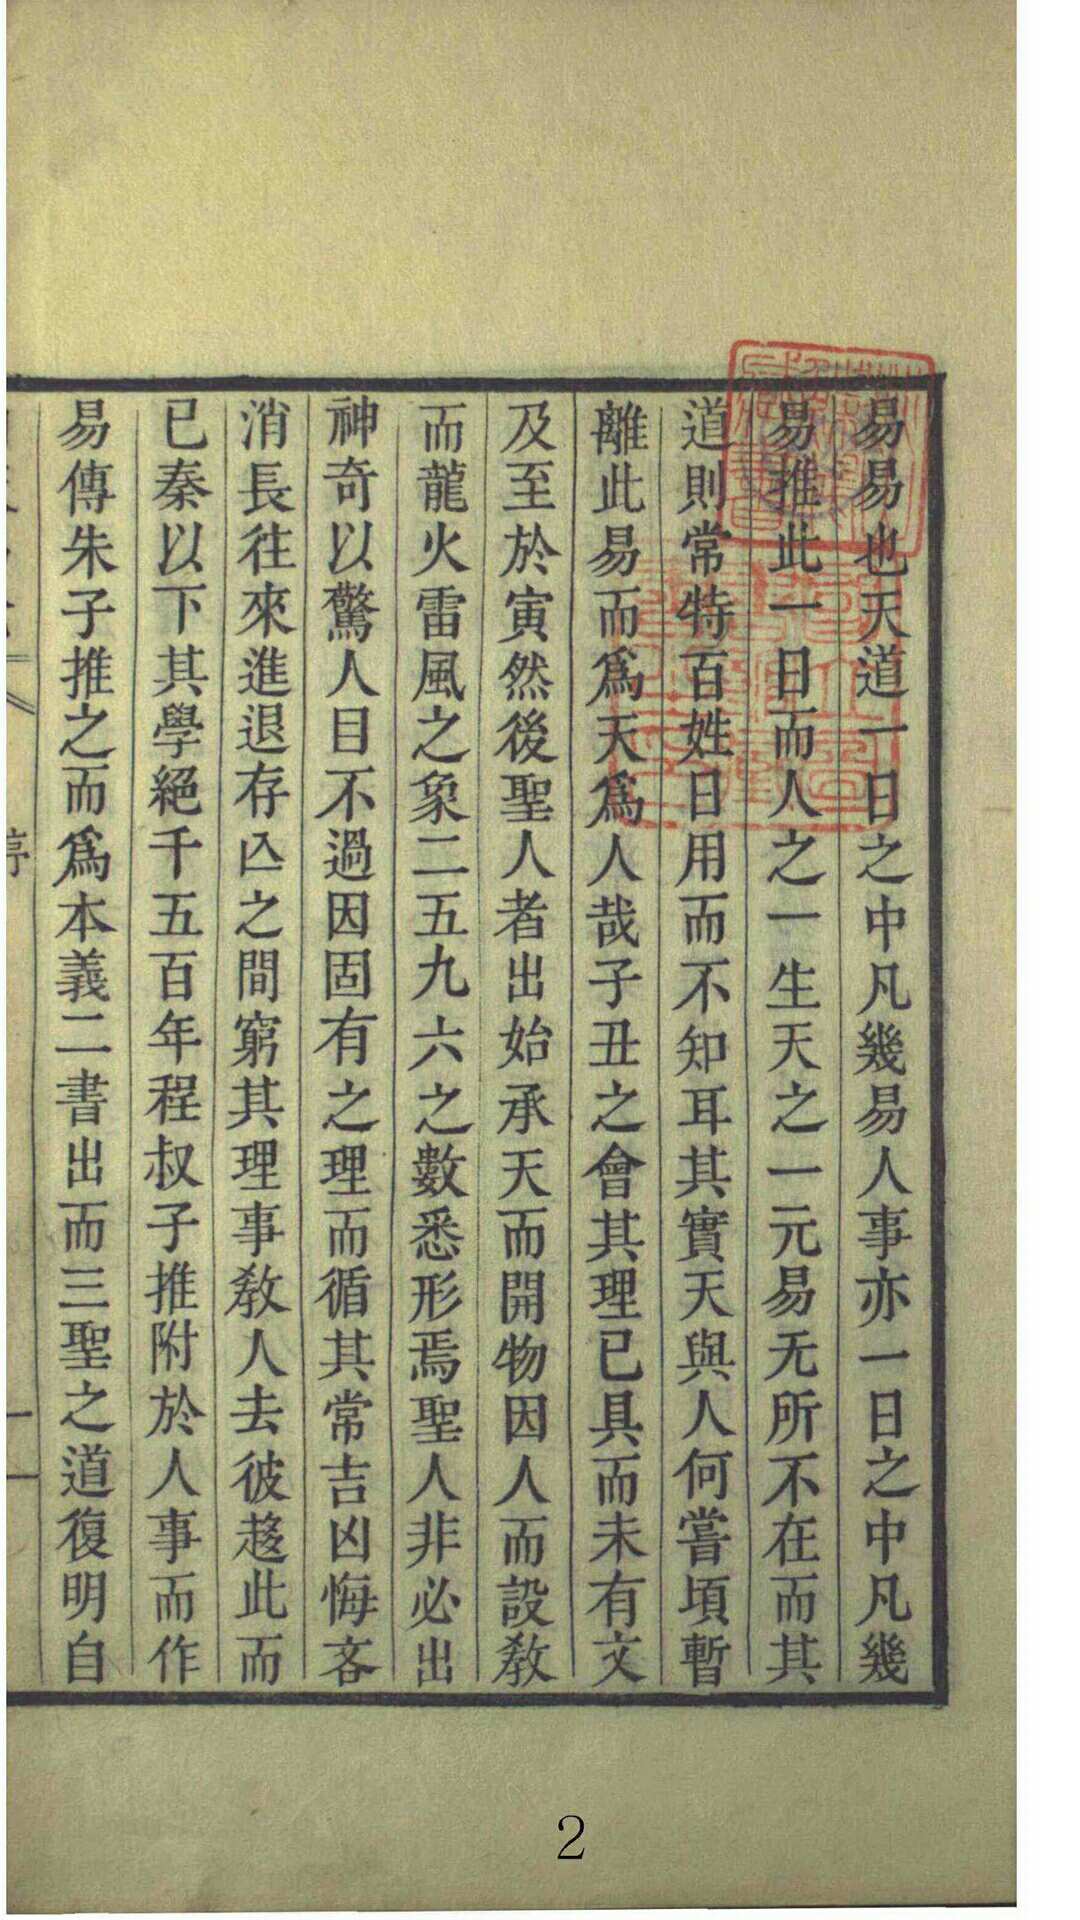 易易也天道一日之中凡幾易人事亦一日之中凡幾
易推此一日而人之一生天之一元易无所不在而其
道則常特百姓日用而不知耳其實天與人何嘗頃暫
離此易而爲天爲人哉子丑之會其理已具而未有文
及至於寅然後聖人者出始承天而開物因人而設敎
而龍火雷風之象二五九六之數悉形焉聖人非必出
神奇以驚人目不過因固有之理而循其常吉凶悔吝
消長往來進退存亾之間窮其理事敎人去彼趍此而
已秦以下其學絕千五百年程叔子推附於人事而作
易傳朱子推之而爲本義二書出而三聖之道復明自
序
一
2